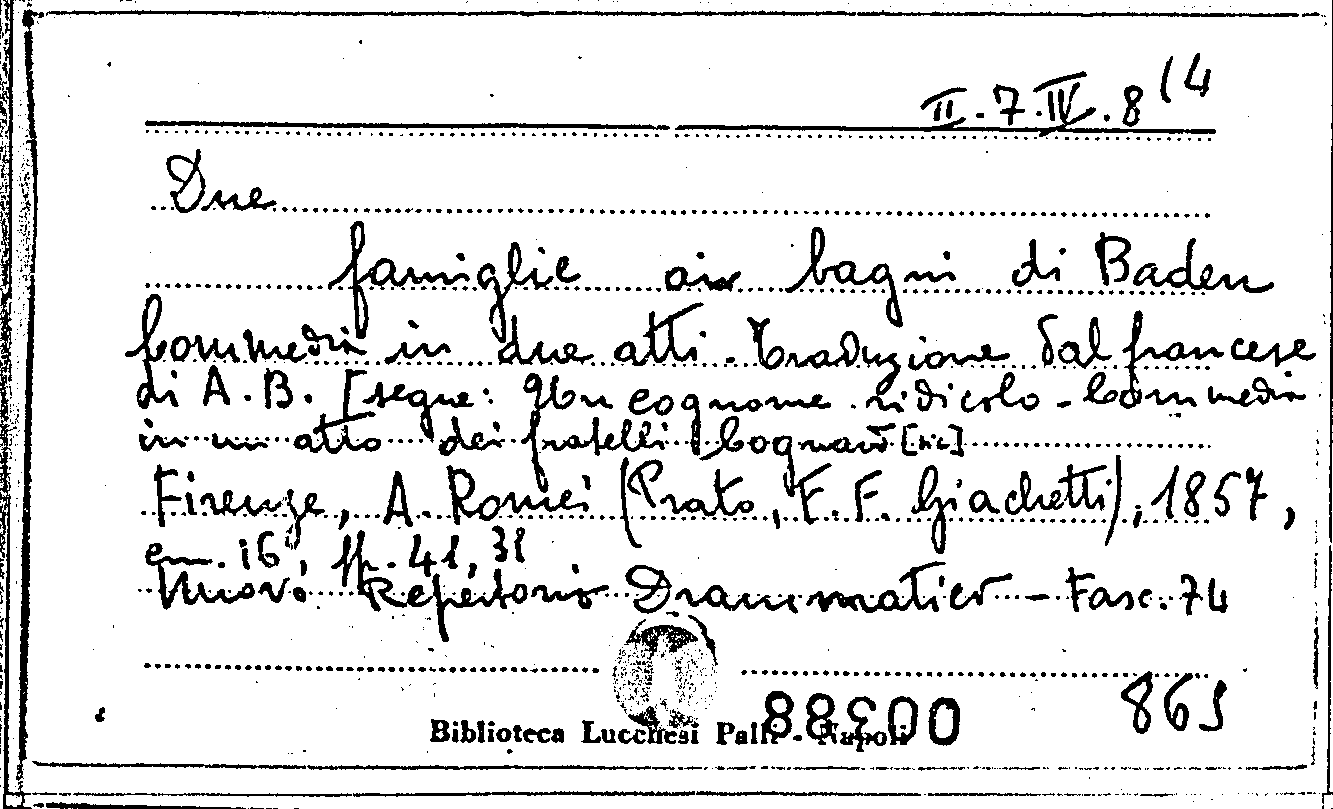 II.7.IV.8 (4
Due
famiglie ai bagni di Baden
Commedia in due atti. Traduzione dal francese
di A.B. [segue: Un cognome ridicolo - Commedia
in un atto dei fratelli Cognard [sic]
Firenze, A. Romei (Prato, F.F. Giachetti), 1857,
cm. 16, pp. 41, 31
Nuovo Repertorio Drammatico - Fasc. 74
869
Biblioteca Lucchesi Palli - Napoli